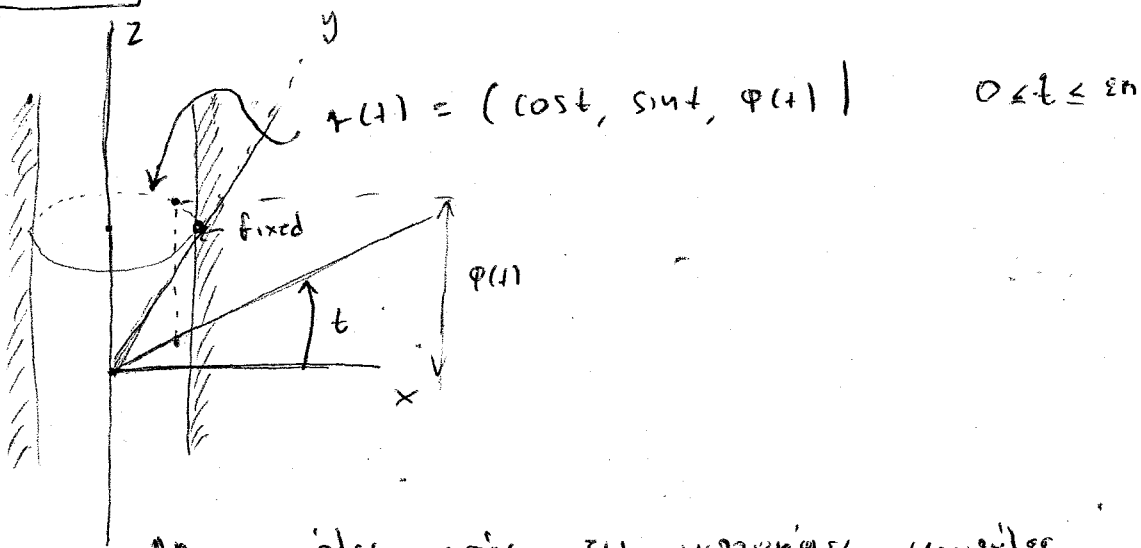 z
y
r(t) = (cost, sint, φ(t)) 0 ≤ t ≤ 2π
fixed
φ(t)
t
x